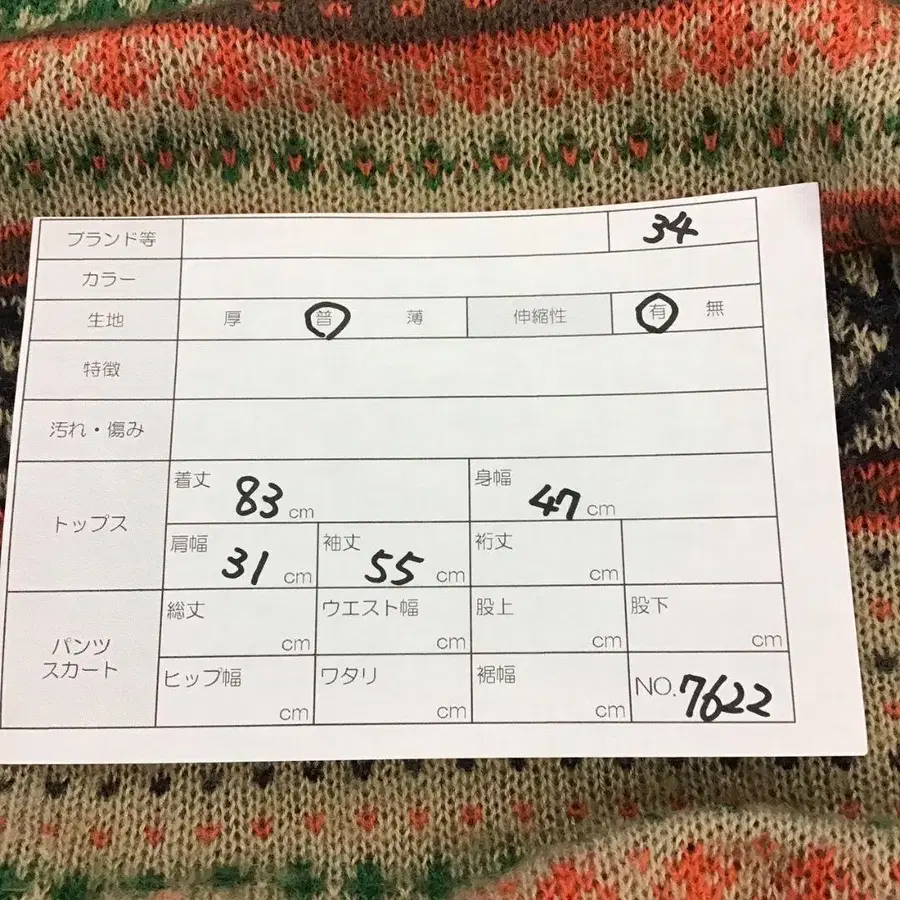 ブランド等 34
カラー
生地 厚 普 薄 伸縮性 有 無
特徴
汚れ・傷み
トップス
着丈 83 cm 身幅 47 cm
肩幅 31 cm 袖丈 55 cm 裄丈 cm
パンツ
スカート
総丈 cm ウエスト幅 cm 股上 cm 股下 cm
ヒップ幅 cm ワタリ cm 裾幅 cm NO.7622